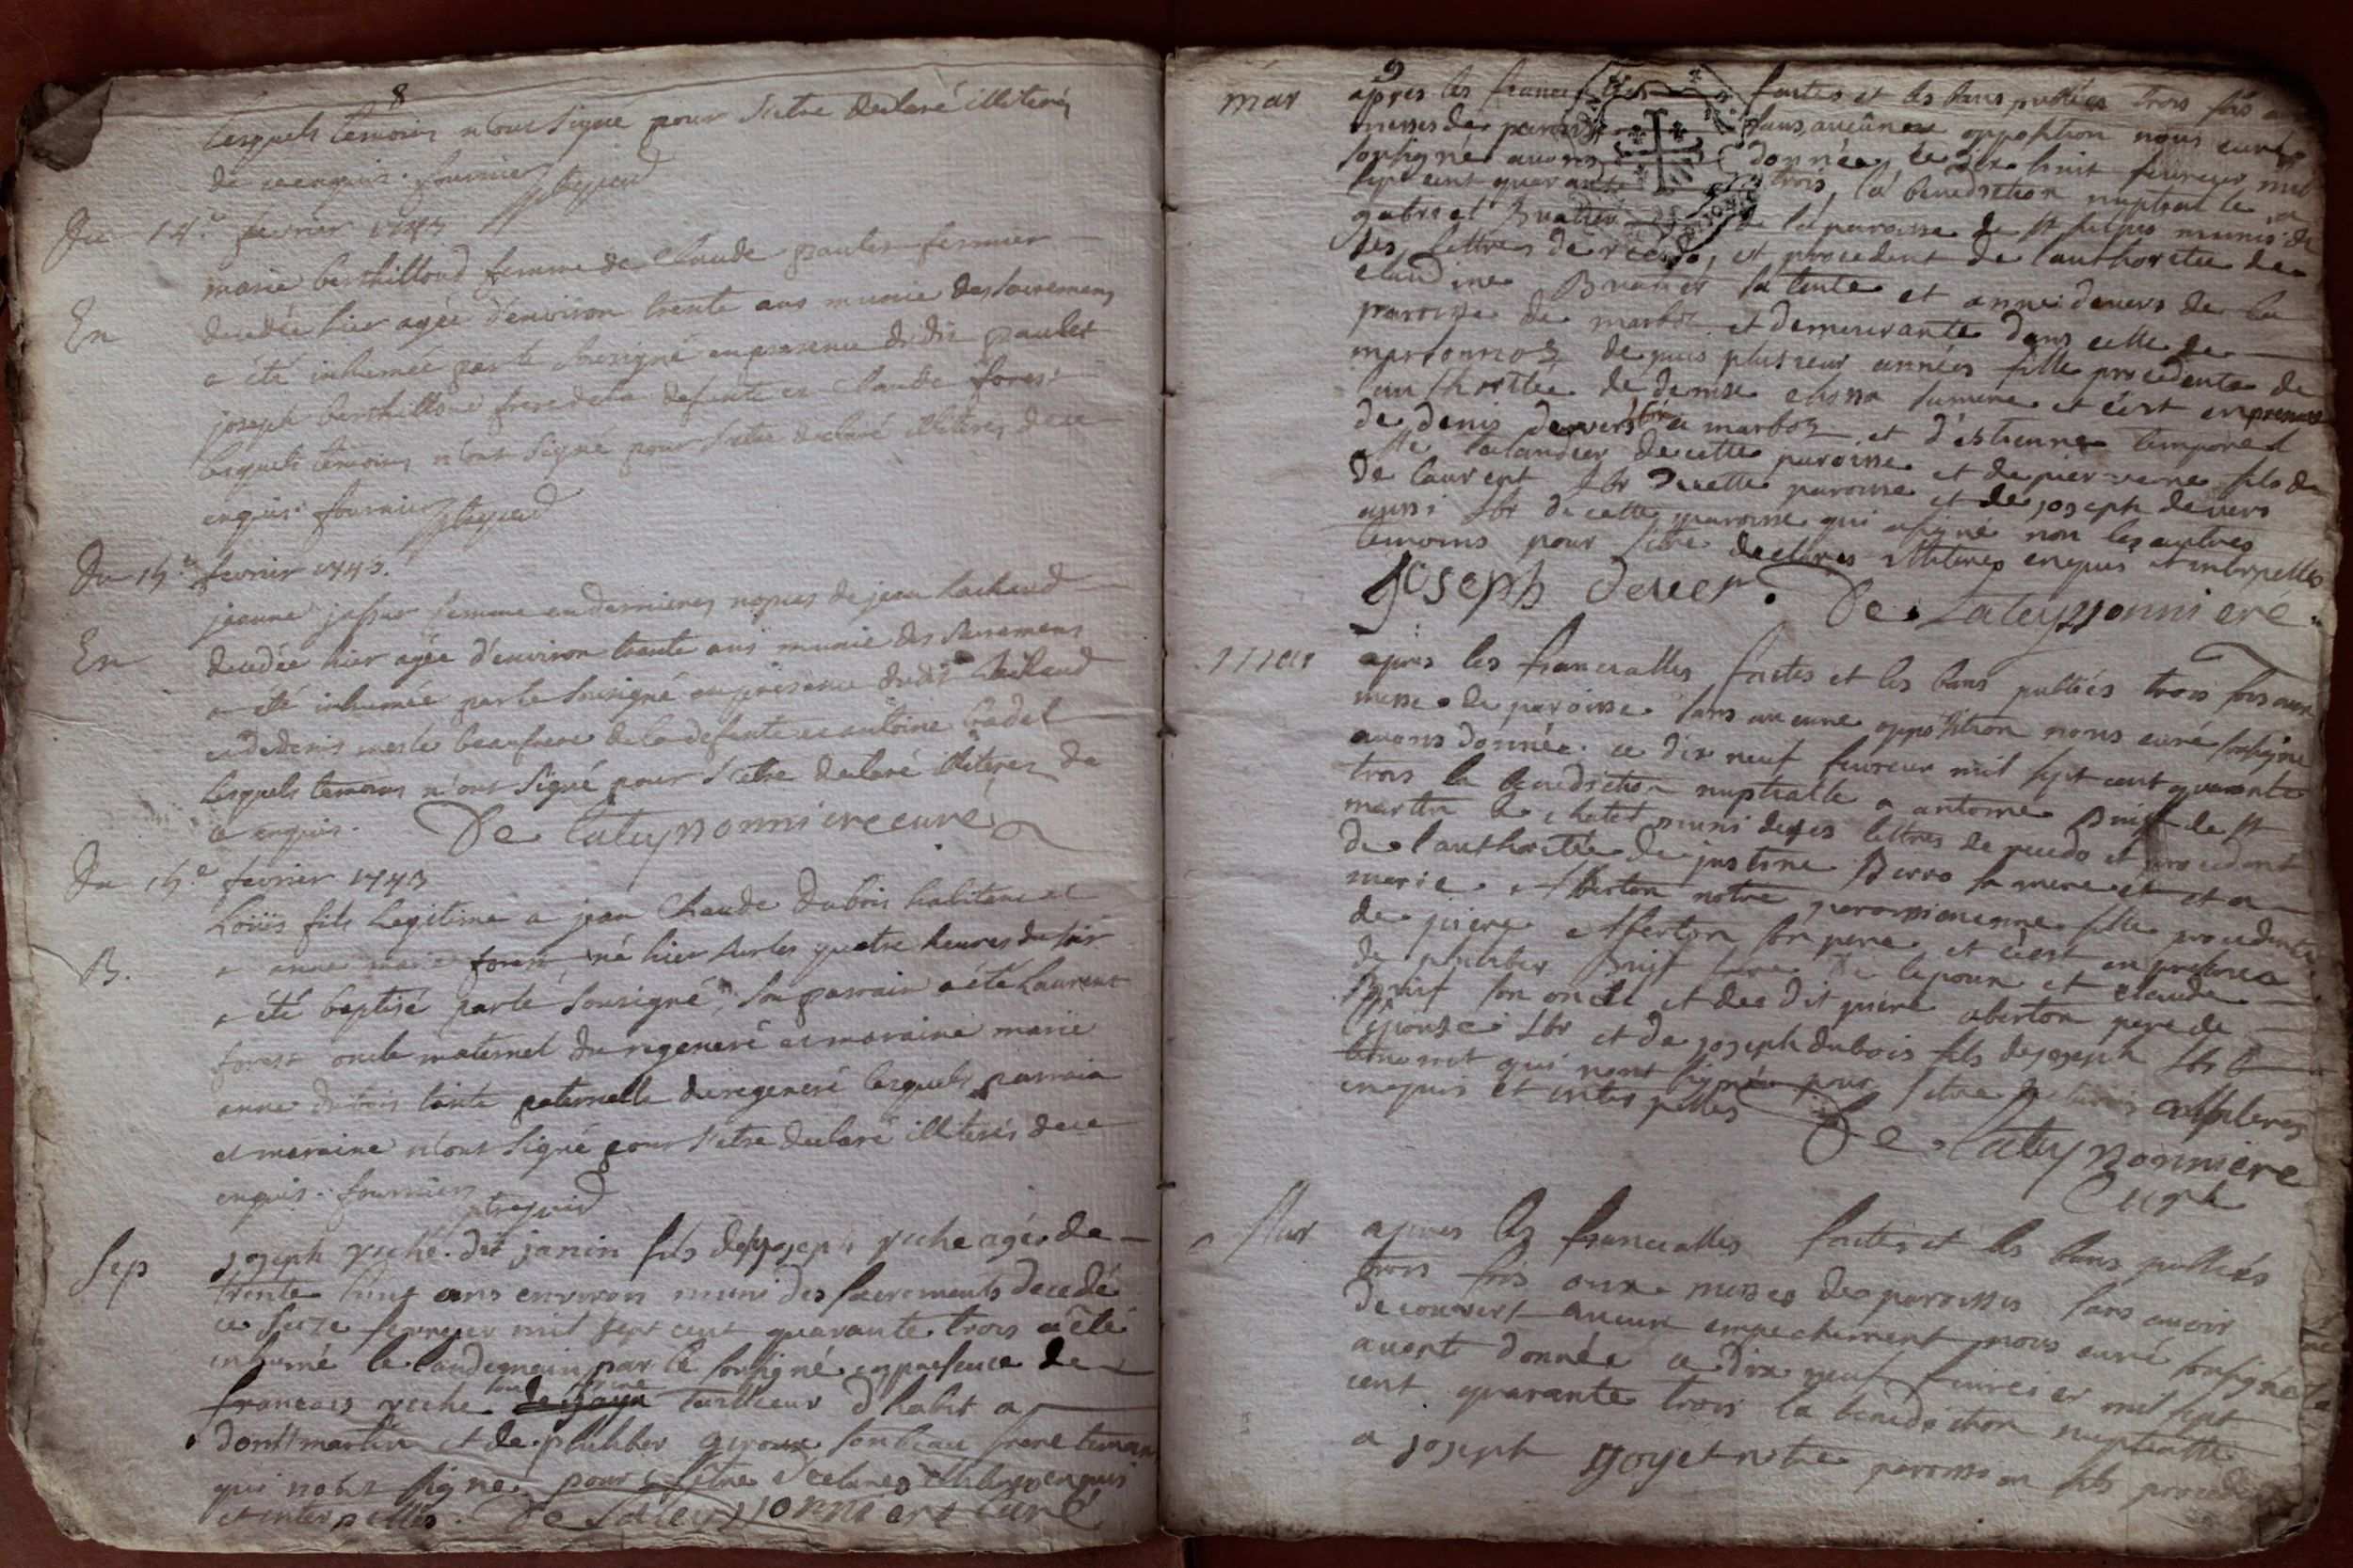 8
lesquels temoins n'ont signé pour s'etre declaré illiterés
de ce enquis. fournier
Du 14.e fevrier 1743
marie berthilloud femme de Claude paulet fermier
En decedée hier agée d'environ trente ans munie des sacremens
a été inhumée par le sousigné en presence dudit paulet
joseph berthilloud frere de la defunte et Claude forest
lesquels temoins n'ont signé pour s'etre declaré illiterés de ce
enquis. fournier
Du 15.e fevrier 1743.
jeanne femme en dernieres nopces de jean
En decedée hier agée d'environ trente ans munie des sacremens
a été inhumée par le sousigné en presence dudit
et de denis mesle beaufrere de la defunte et antoine
lesquels temoins n'ont signé pour s'etre declaré illiterés de
ce enquis. De Lateyssonniere curé
Du 15.e fevrier 1743
Loüis fils legitime a jean Claude Dubois habitant et
B. a anne marie forest né hier sur les quatre heures du soir
a été baptisé par le sousigné, son parrain a été Laurent
forest oncle maternel du regeneré et maraine marie
anne dubois tante paternelle du regeneré lesquels parrain
et maraine n'ont signé pour s'etre declaré illiterés de ce
enquis. fournier
Sep joseph dit janin fils de joseph agé de
trente huit ans environ muni des sacrements decedé
ce seize fevreyer mil sept cent quarante trois a été
inhumé le landemain par le sousigné en presence de
francois tailleur d'habit a
domtmartin et de philiber son beau frere temoin
qui n'ont signé pour s'etre declarés illiterés enquis
et interpellés. De Lateyssonniere Curé
9
mar apres les fiancialles faites et les bans publiées trois fois aux
messes de paroisse sans aucune opposition nous curé
sousigné avons donnée, ce dix huit fevreyer mil
sept cent quarante trois, la benediction nuptialle a
gabriel de la paroisse de st munis de
ses lettres de recedo, et procedent de l'authoritée de
claudine sa tente et anne devers de la
paroisse de marboz et demeurante dans celle de
marsonnoz depuis plusieur années fille procedente de
l'authoritée de denise sa mere et c'est en presence
de denis devers a marboz et d'estienne temporel
de cette paroisse et de fils de
de laurent lbr de cette paroisse et de joseph devers
aussi lbr de cette paroisse qui a signé non les autres
temoins pour s'etre declares illiteres enquis et interpelles
joseph dever. De Lateyssonniere.
mar apres les fiancialles faites et les bans publiés trois fois aux
messe de paroisse sans aucune opposition nous curé sousigné
avons donnée ce dix neuf fevreyer mil sept cent quarante
trois la benediction nuptialle a antoine de st
martin le chatel muni de ses lettres de recedo et procedent
de l'authoritée de justine sa mere et a
marie Aberton notre paroissienne fille procedente
de piere Aberton son pere et c'est en presence
de philiber frere de l'epoux et claude
son oncle et de dit piere aberton pere de
l'epouse lbr et de joseph dubois fils de joseph lbr
temoins qui n'ont signé pour s'etre declarés illiteres
enquis et interpelles De Lateyssonniere
Curé
Mar apres les fiancialles faites et les bans publiés
trois fois aux messes de paroisses sans avoir
decouvert aucun empechement nous curé sousigné
avont donnée ce dix neuf fevreier mil sept
cent quarante trois la benediction nuptialle
a joseph goyet notre paroissien fils